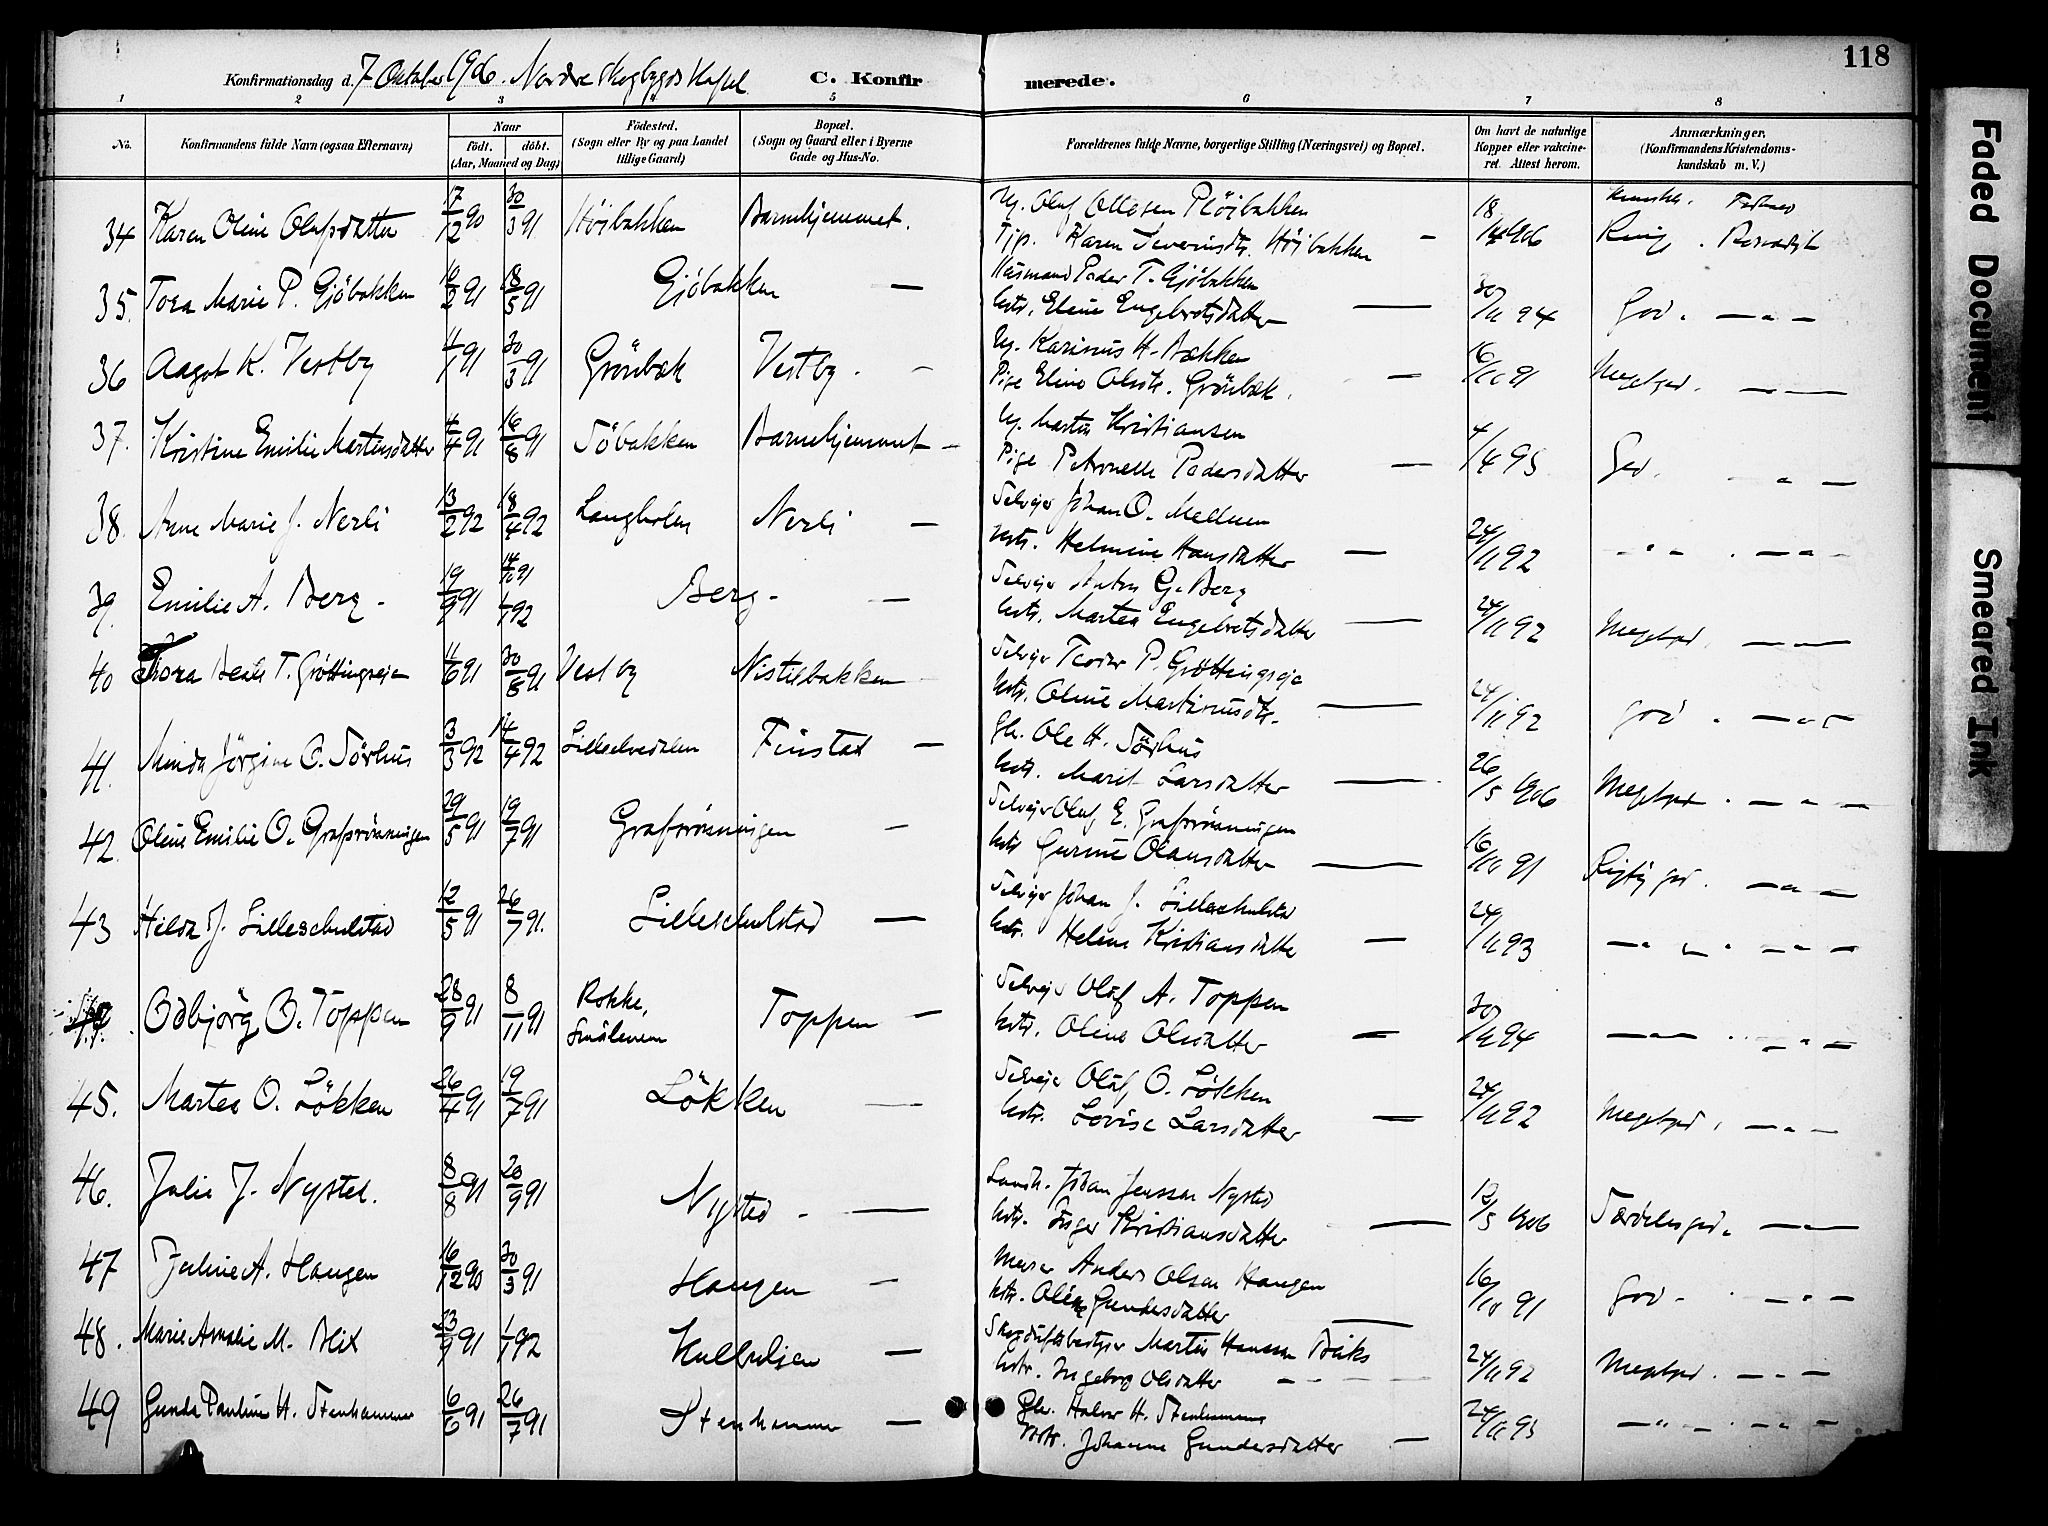 118
Konfirmationsdag d. 7 Oktober 1906. Nordre Skogbygds Kapel C. Konfirmerede.
1 2 3 4 5 6 7 8
No.
Konfirmandens fulde Navn (ogsaa Efternavn)
Naar
født. døbt.
(Aar, Maaned og Dag)
Fødested.
(Sogn eller By og paa Landet
tillige Gaard)
Bopæl.
(Sogn og Gaard eller i Byerne
Gade og Hus-No.
Forældrenes fulde Navne, borgerlige Stilling (Næringsvei) og Bopæl.
Om havt de naturlige
Kopper eller vakcineret.
Attest herom.
Anmærkninger.
(Konfirmandens Kristendomskundskab
m. V.)
34 Karen Oline Olafsdatter 17/12 90 30/3 91 Höibakken Barnehjemmet. Ug. Oluf Ottesen Plöibakken
Karen Severinsdtr. Höibakken — 18/4 1906
35. Tora Marie P. Gjöbakken 10/2 91 18/5 91 Gjöbakken — Husmand Peder T. Gjöbakken
hstr. Eline Engebretsdatter — 30/11 94 God. — " —
36 Aagot K. Vestby 4/1 91 30/3 91 Grönbæk Vestby. — Ug. Karinus H. Bakken
Pige Eline Olsdtr. Grönbæk. — 16/10 91 Megetgod. — " —
37. Kristine Emilie Martinsdatter 4/4 91 16/8 91 Töbakken Barnehjemmet — Ug. Martin Kristiansen
Pige Petronelle Pedersdatter — 4/4 95 God. — " —
38. Anne Marie J. Nerli 13/2 92 18/4 92 Langholen Nerli — Selvejer Johan O. Mellum
hstr. Helmine Hansdatter — 24/11 92 — " — . — " —
39. Emilie A. Berg. 19/9 91 14/10 91 1/1 92 Berg. — Selvejer Anton G. Berg
hstr. Martea Engebretsdatter — 24/11 92 Megetgod. — " —
40 Thora Beate T. Gröttingseje 11/6 91 30/8 91 Vestby Nistilbakken — Selvejer Teodor P. Gröttingseje
hstr. Oline Martinusdtr. — 24/11 92 God. — " —
41. Minda Jörgine O. Törhus 3/3 92 14/4 92 Lilleelvedalen Finstad — Gb. Ole H. Törhus
hstr. Marit Larsdatter — 26/5 1906 Megetgod. — " —
42. Oline Emilie O. Grafsrönningen 29/5 91 19/7 91 Grafsrönningen — Selvejer Oluf E. Grafsrönningen
hstr. Gurine Olausdatter — 16/10 91 Rigtig god. — " —
43 Hilda J. Lilleschulstad 12/5 91 26/7 91. Lilleschulstad — Selvejer Johan J. Lilleschulstad
hstr. Helene Kristiansdatter — 24/11 93 — " — " . — " —
Odbjörg O. Toppen 28/9 91 8/11 91 Rokke,
Smålenene Toppen — Selvejer Oluf A. Toppen
hstr. Oline Olsdatter — 30/11 94 — " — . — " —
45. Martea O. Lökken 26/4 91 19/7 91 Lökken — Selveje Oluf O. Lökken
hstr. Lovise Larsdatter — 24/11 92 Megetgod. — " —
46. Julie J. Nysted. 8/8 91 20/9 91 Nysted. — Landh. Johan Jenssen Nysted
hstr. Inger Kristiansdatter — 12/5 1906 Særdelesgod. — " —
47 Juline A. Haugen 16/12 90 30/3 91 Haugen — Murer Anders Olsen Haugen
hstr. Oline Gundersdatter — 16/10 91 God. — " —
48. Marie Amalie M. Blix 23/9 91 1/1 92 — Martin Hanssen
hstr. Ingeborg Olsdatter — 24/11 92 Megetgod. — " —
49 Gunda Pauline H. Stenhammer 6/6 91 26/7 91 Stenhammer — Gbr. Halvor H. Stenhammer
hstr. Johanne Gundersdatter — 24/11 93 — " — . — " —
Faded Document
Smeared Ink